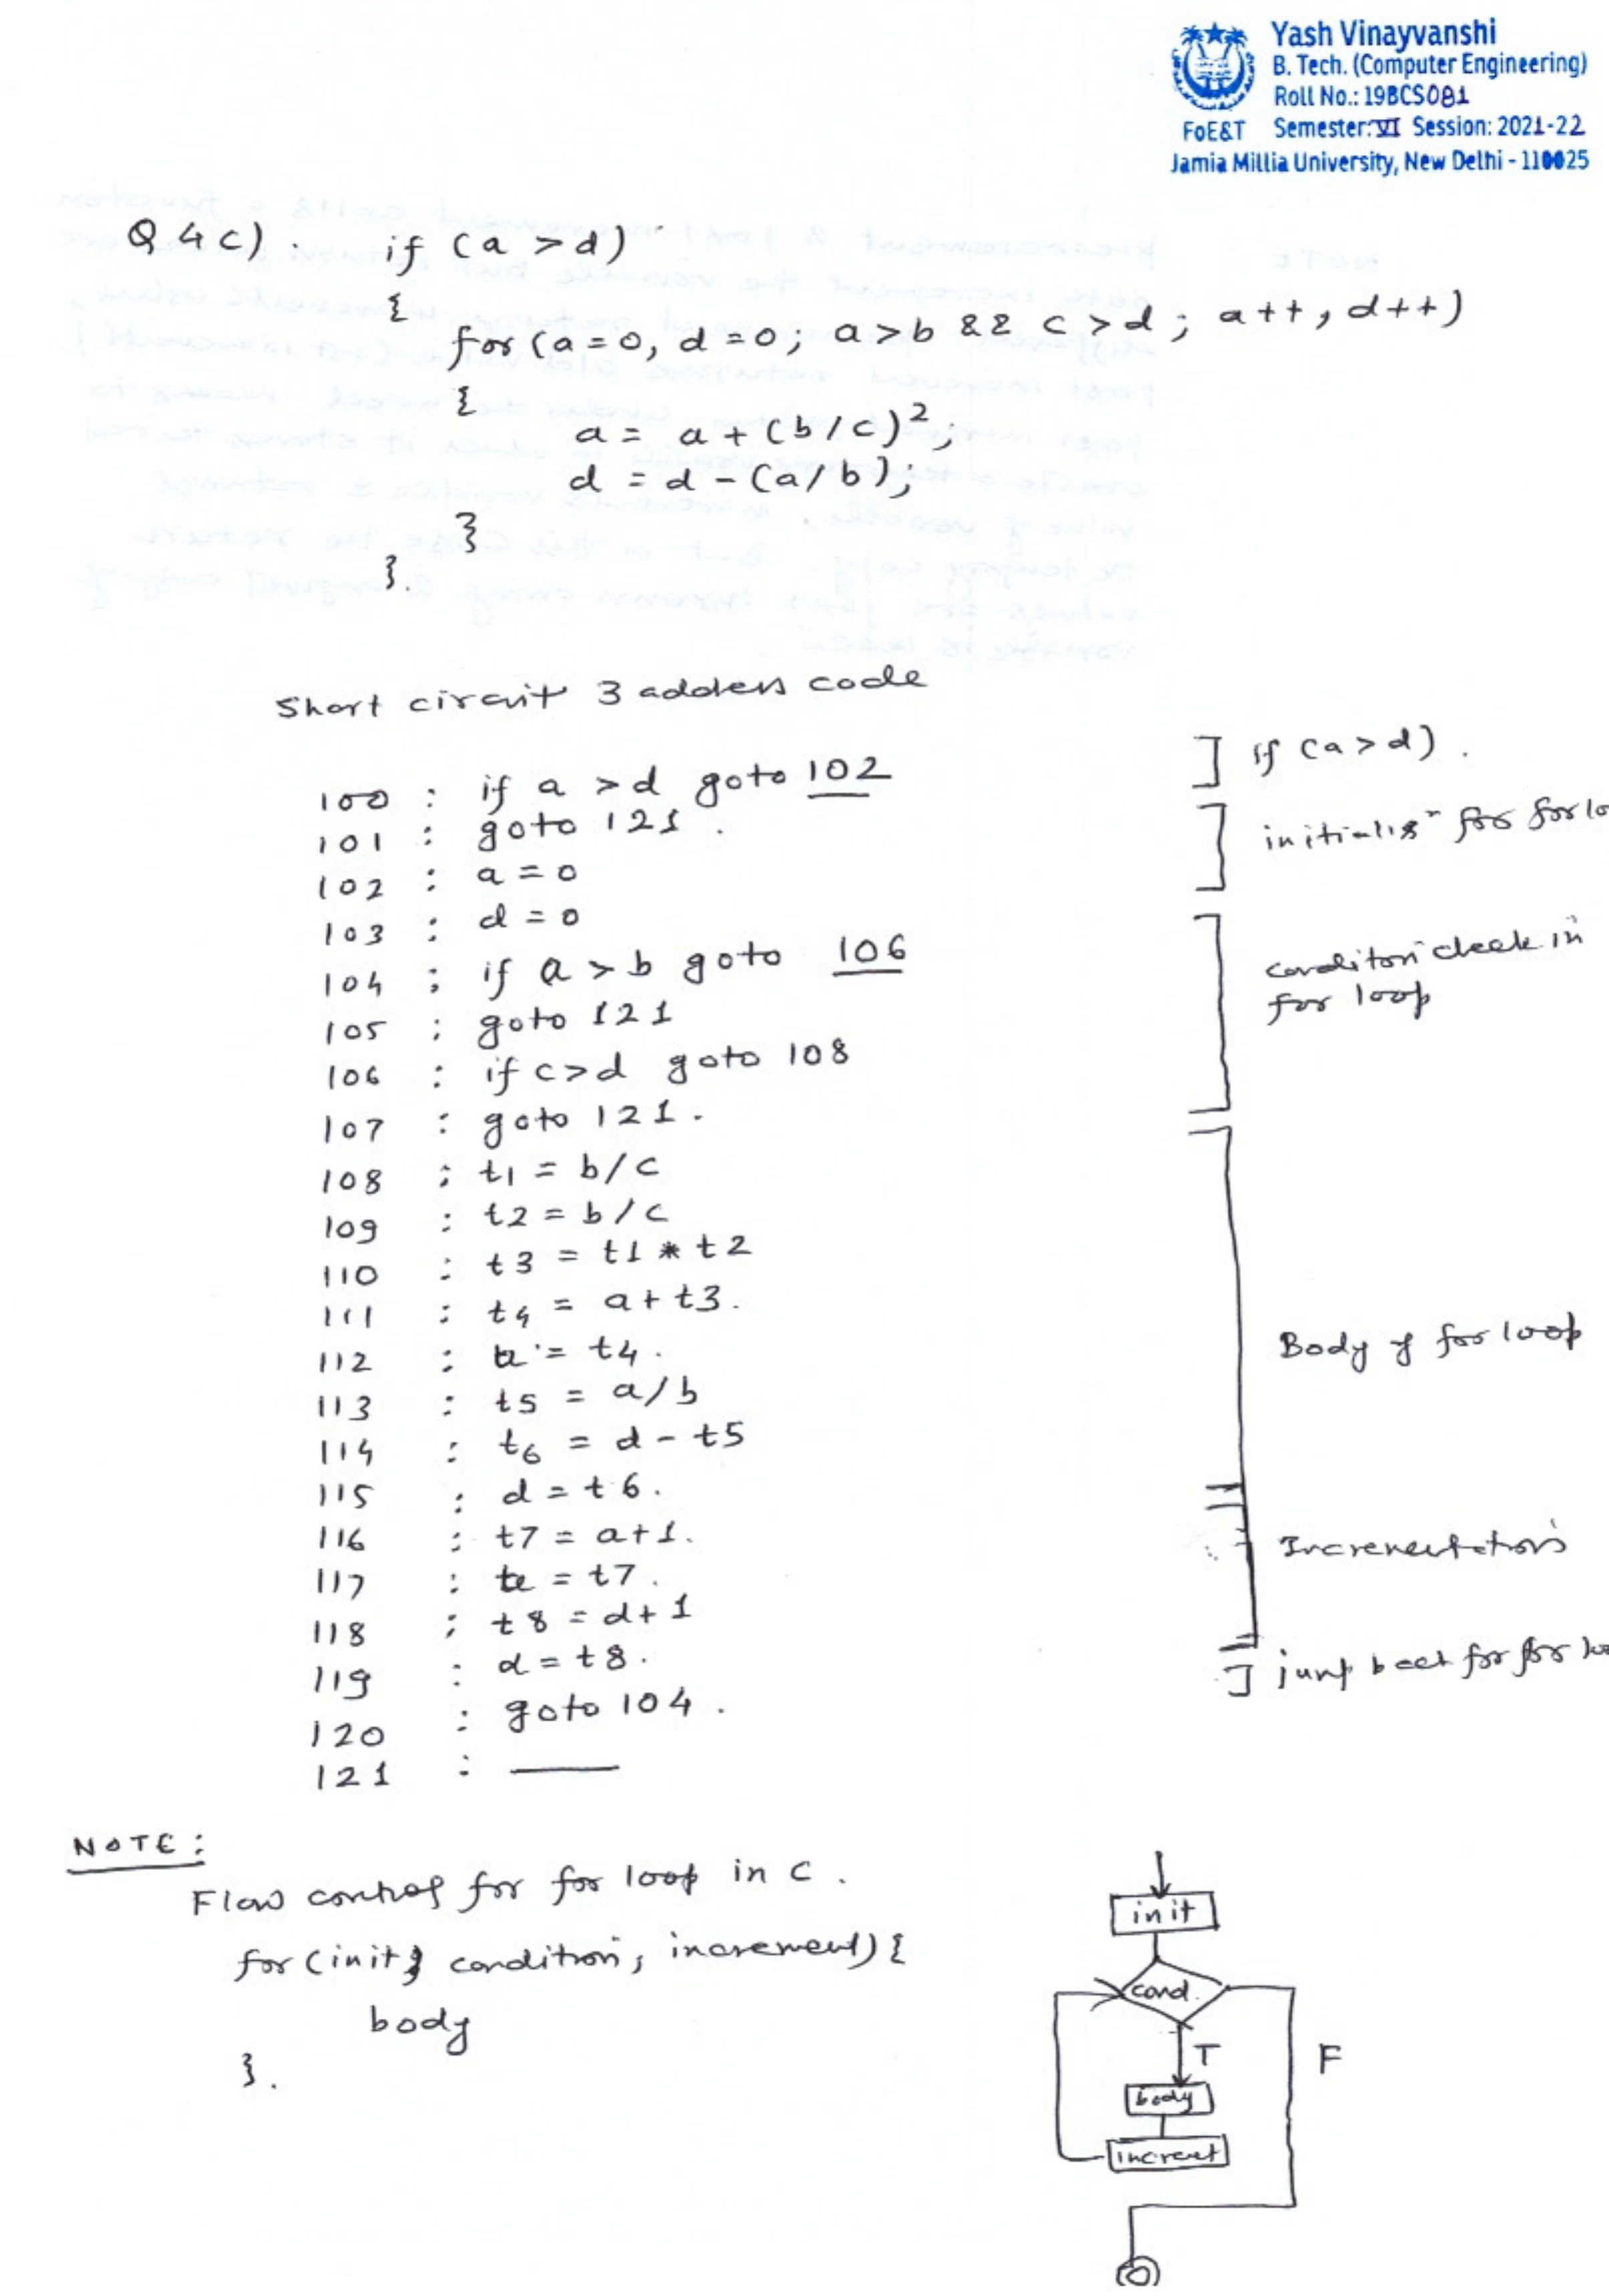 Yash Vinayvanshi
B. Tech. (Computer Engineering)
Roll No.: 19BCS081
FoE&T Semester: VI Session: 2021-22
Jamia Millia University, New Delhi - 110025
Q 4 c). if (a > d)
{
for (a = 0, d = 0; a > b && c > d ; a++, d++)
{
a = a + (b/c)²;
d = d - (a/b);
}
}.
Short circuit 3 address code
100 : if a > d goto 102 ] if (a > d).
101 : goto 121.
102 : a = 0
103 : d = 0
104 : if a > b goto 106
105 : goto 121
106 : if c > d goto 108
107 : goto 121.
108 : t1 = b/c
109 : t2 = b/c
110 : t3 = t1 * t2
111 : t4 = a + t3.
112 : a = t4.
113 : t5 = a/b
114 : t6 = d - t5
115 : d = t6.
116 : t7 = a+1.
117 : = t7.
118 : t8 = d+1
119 : d = t8.
120 : goto 104.
121 : —
for for
condition check in
for loop
Body of for loop
jump for for
NOTE:
Flow control for for loop in C.
for (init; condition; increment) {
body
}.
init
cond.
T
F
body